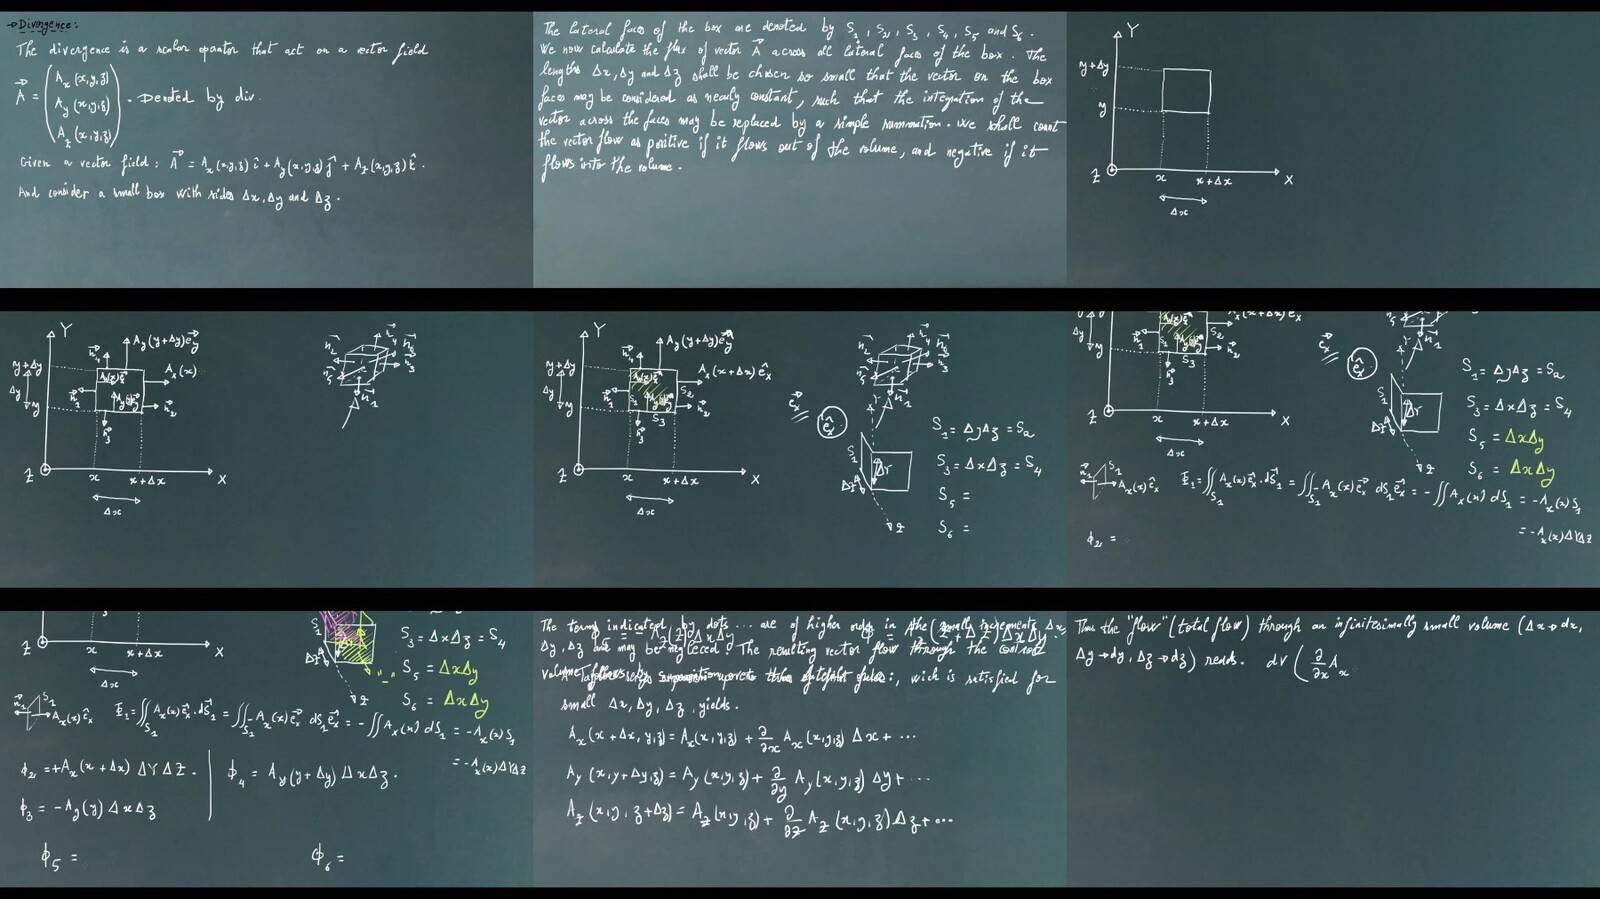 → Divergence:
The divergence is a scalar oparator that act on a vector field
A⃗ = (A_x (x,y,z)
A_y (x,y,z)
A_z (x,y,z)) . Denoted by div.
Given a vector field: A⃗ = A_x(x,y,z) î + A_y(x,y,z) ĵ + A_z(x,y,z) k̂.
And consider a small box with sides Δx, Δy and Δz.
The lateral faces of the box are denoted by S_1, S_2, S_3, S_4, S_5 and S_6.
We now calculate the flux of vector A⃗ across all lateral faces of the box. The
lengths Δx, Δy and Δz shall be chosen so small that the vector on the box
faces may be considered as nearly constant, such that the integration of the
vector across the faces may be replaced by a simple summation. We shall count
the vector flow as positive if it flows out of the volume, and negative if it
flows into the volume.
Y
y+Δy
y
Z x x+Δx X
Δx
Y
A_y(y+Δy)e⃗_y
y+Δy
n⃗_4
Δy
A_x(x)
y
n⃗_1
n⃗_2
n⃗_3
Z x x+Δx X
Δx
Y
A_y(y+Δy)e⃗_y
y+Δy
n⃗_4
A_x(x+Δx) ê_x
Δy
y
S_1 S_2
S_3
n⃗_1
n⃗_2
n⃗_3
Z x x+Δx X
Δx
e⃗_x
S_1
ΔY
ΔZ
Z
S_1 = ΔyΔz = S_2
S_3 = ΔxΔz = S_4
S_5 =
S_6 =
A_x(x+Δx) ê_x
Δy
y
S_2
S_3
n⃗_2
n⃗_3
Z x x+Δx X
Δx
e⃗_x
S_1
ΔY
ΔZ
Z
S_1 = ΔyΔz = S_2
S_3 = ΔxΔz = S_4
S_5 = ΔxΔy
S_6 = ΔxΔy
n⃗_1 S_1 A_x(x) ê_x
Φ_1 = ∬_{S_1} A_x(x) e⃗_x . dS⃗_1 = ∬_{S_1} -A_x(x) e⃗_x dS_1 e⃗_x = -∬ A_x(x) dS_1 = -A_x(x) S_1
= -A_x(x) ΔYΔZ
ϕ_2 =
Z x x+Δx X
Δx
S_1
ΔZ
Z
S_3 = ΔxΔz = S_4
S_5 = ΔxΔy
S_6 = ΔxΔy
n⃗_1 S_1 A_x(x) ê_x
Φ_1 = ∬_{S_1} A_x(x) e⃗_x . dS⃗_1 = ∬_{S_1} -A_x(x) e⃗_x dS_1 e⃗_x = -∬ A_x(x) dS_1 = -A_x(x) S_1
= -A_x(x) ΔYΔZ
ϕ_2 = +A_x(x+Δx) ΔYΔZ.
ϕ_4 = A_y(y+Δy) ΔxΔz.
ϕ_3 = -A_y(y) ΔxΔz
ϕ_5 =
ϕ_6 =
The terms indicated by dots ... are of higher order in the small increments Δx,
Δy, Δz and may be neglected. The resulting vector flow through the control
volume
, wich is satisfied for
small Δx, Δy, Δz, yields.
A_x(x+Δx, y,z) = A_x(x,y,z) + ∂/∂x A_x(x,y,z) Δx + ...
A_y(x,y+Δy,z) = A_y(x,y,z) + ∂/∂y A_y(x,y,z) Δy + ...
A_z(x,y,z+Δz) = A_z(x,y,z) + ∂/∂z A_z(x,y,z) Δz + ...
Thus the "flow" (total flow) through an infinitesimally small volume (Δx→dx,
Δy→dy, Δz→dz) reads. dV (∂/∂x A_x